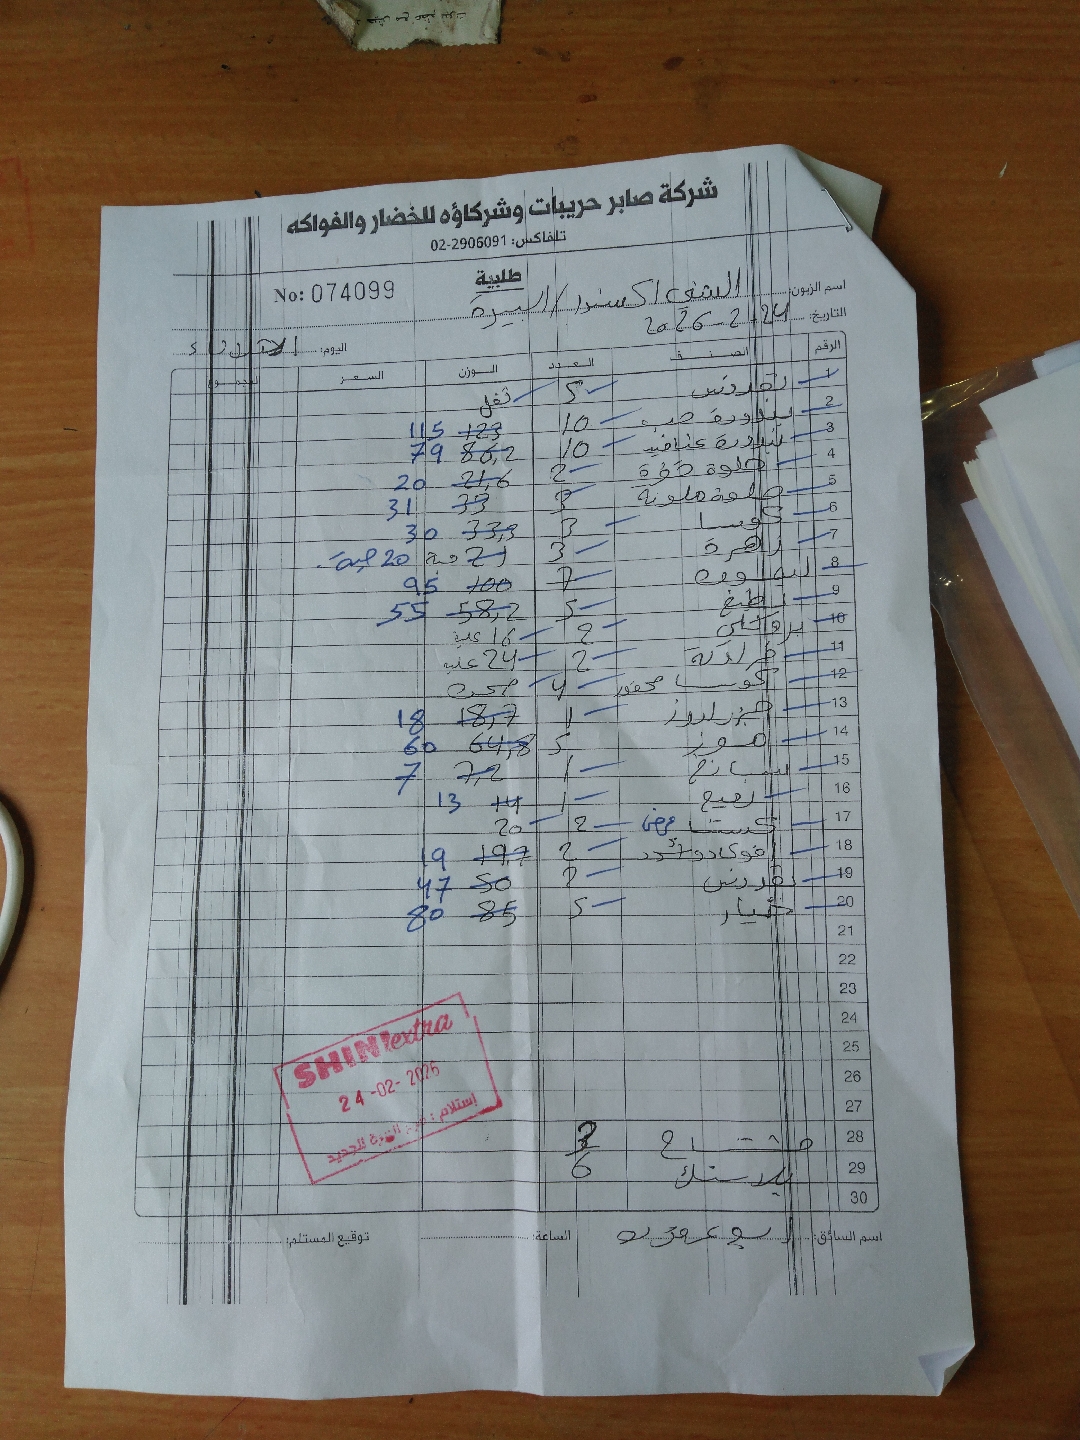 شركة صابر حريبات وشركاؤه للخضار والفواكه
تلفاكس: 02-2906091
طلبية
No: 074099
اسم الزبون: الشني اكسترا / البيرة
التاريخ: 24-2-2026
اليوم: الثلاثاء
الرقم الصنف العدد الوزن السعر المجموع
1 بقدونس 5
2 بندورة حب 10 123 115
3 بندورة عناقيد 10 86,2 79
4 حلوة 2 21,6 20
5 حلوة ملونة 3 33 31
6 كوسا 3 33,3 30
7 زهرة 3 21 حبة 20 حبة
8 7 100 95
9 بطيخ 5 58,2 55
10 2 16 علبة
11 فراولة 2 24 علبة
12 كوسا محفور 4 صحن
13 1 18,7 18
14 موز 5 64,8 60
15 سبانخ 1 7,2 7
16 1 14 13
17 2 20
18 افوكادو 2 19,7 19
19 بقدونس 2 50 47
20 خيار 5 85 80
21
22
23
24
25
26
27
28 مشتاح 3
29 بلاستك 6
30
SHINI extra
24-02-2026
إستلام :
اسم السائق: ابو
الساعة:
توقيع المستلم: